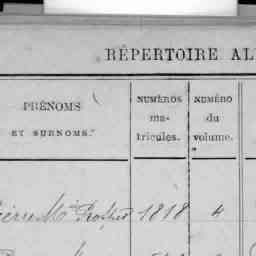 RÉPERTOIRE AL
PRÉNOMS
ET SURNOMS.
NUMÉROS
ma-
tricules.
NUMÉRO
du
volume.
1818 4